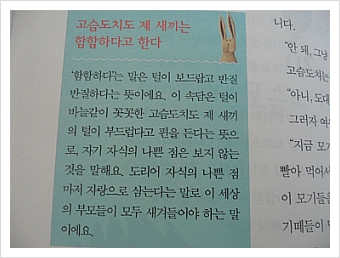 고슴도치도 제 새끼는
함함하다고 한다
'함함하다'는 말은 털이 보드랍고 반질
반질하다는 뜻이에요. 이 속담은 털이
바늘같이 꼿꼿한 고슴도치도 제 새끼
의 털이 부드럽다고 편을 든다는 뜻으
로, 자기 자식의 나쁜 점은 보지 않는
것을 말해요. 도리어 자식의 나쁜 점
마저 자랑으로 삼는다는 말로 이 세상
의 부모들이 모두 새겨들어야 하는 말
이에요.
니다.
"안 돼, 그냥
고슴도치는
"아니, 도대
그러자 여우
"지금 모기
빨아 먹어서
이 모기들을
기떼들이 덕